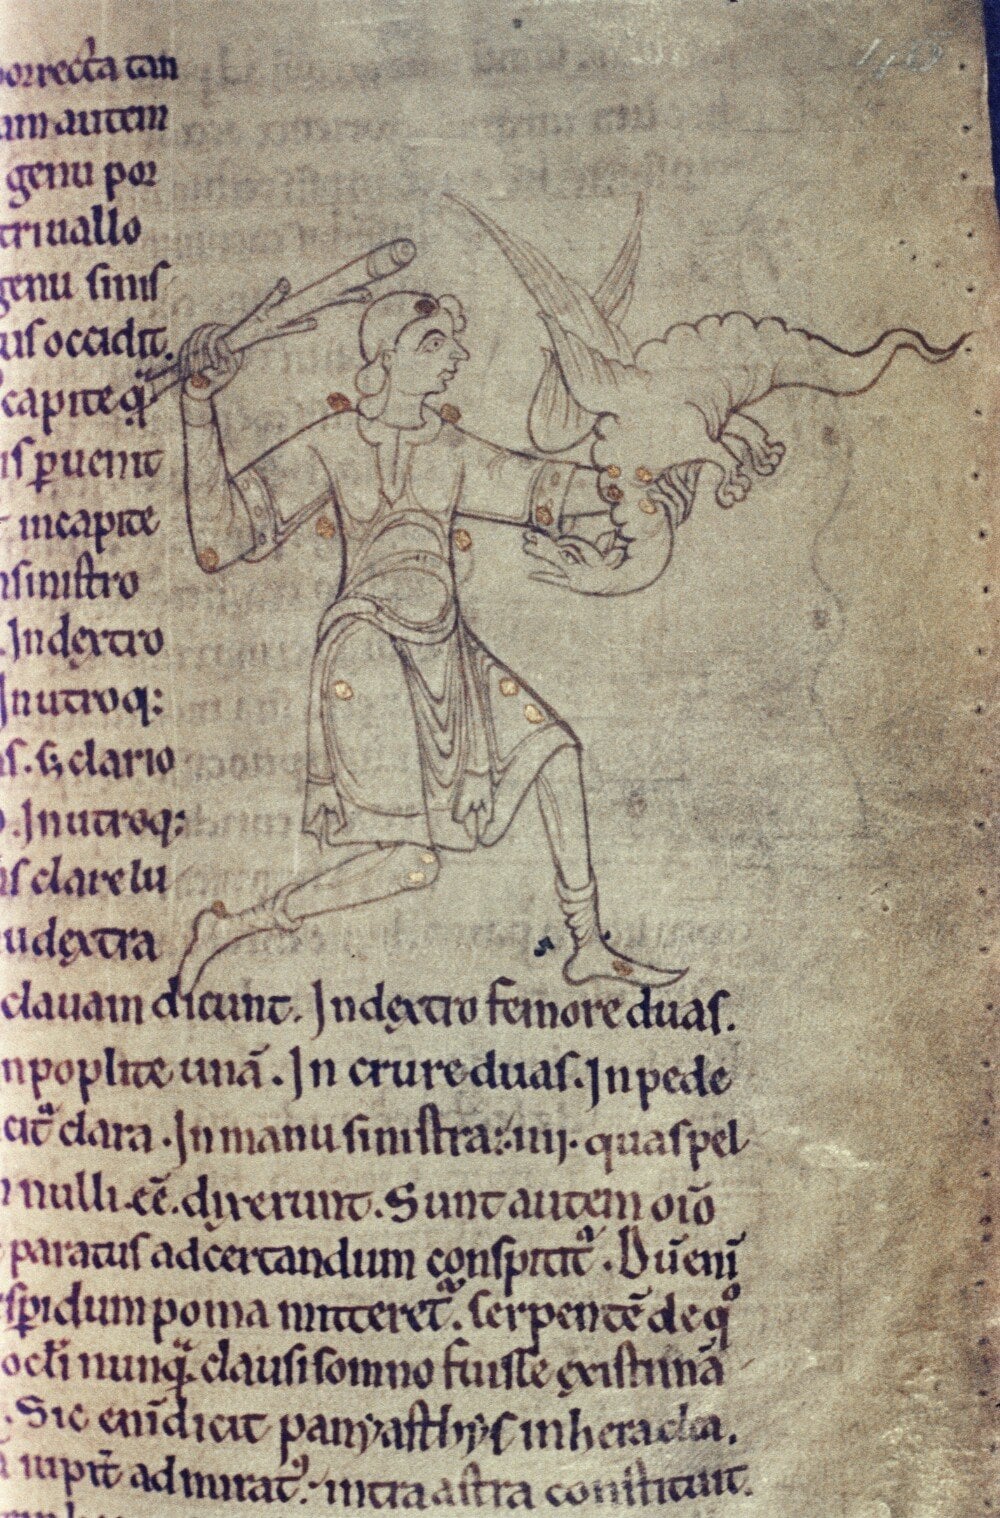 porrecta tan
am autem
genu por
triuallo
genu sinis
us occidit.
capite q̇
is ꝑuenit
incapite
sinistro
. In dextro
In utroq:
clario
. In utroq:
is clare lu
u dextra
clauam dicunt. In dextro femore duas.
npoplite unā. In crure duas. In pede
clara. In manu sinistra: .iiij. quas pel
nulli. eē. dixerunt. Sunt autem oīo
paratus adcertandum conspicit᷒. Dū enī
spidum poma mitteret᷒. serpentē de q̊
nunq̃ clausi somno fuisse existimā
. Sic enī dicit panyasthys inheraclia.
iupiṫ admirat᷒: intra astra constituit.